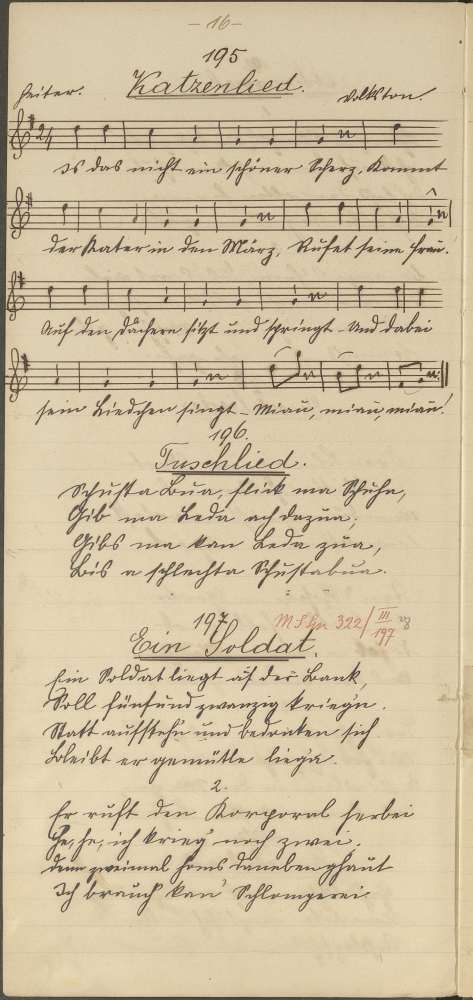 – 16 –
195
Katzenlied.
Heiter. Volkston.
2/4
Is das nicht ein schöner Scherz, kommt
der Kater in den März, Rufet seine Frau.
Auf den Dächern sitzt und springt – Und dabei
sein Liedchen singt – Miau, miau, miau!
196.
Tuschlied.
Schusta Bua, flick ma Schuha,
Gib ma Leda ach dazua.
Gibs ma kan Leda zua,
Bis a schlechta Schustabua.
197
M.S.Gr 322/III 197
Ein Soldat.
Ein Soldat liegt af der Bank,
Soll fünfundzwanzig kriegn.
Statt aufstehn und bedanken sich
Bleibt er gemütle liega.
2.
Er ruft den Korporal herbei
He, he, ich krieg noch zwei,
denn zweimal homs danebenghaut
Ich brauch kan Schlamperei